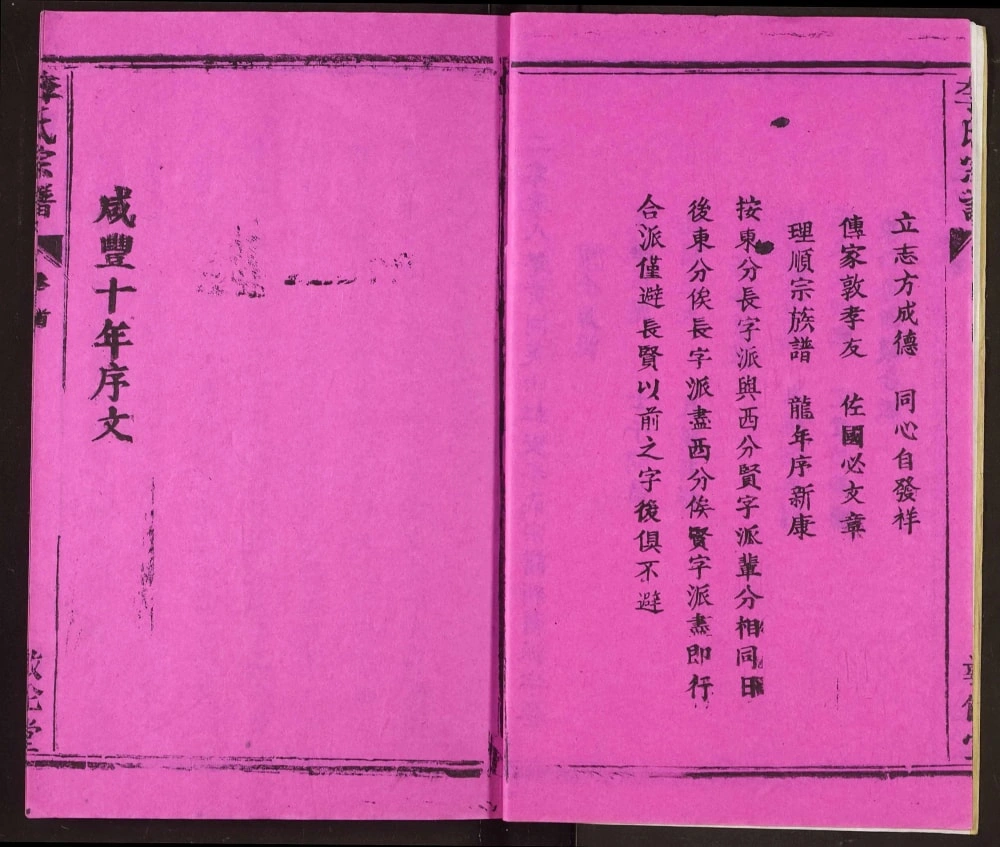 李氏宗譜
立志方成德　同心自發祥
傳家敦孝友　佐國必文章
理順宗族譜　龍年序新康
按東分長字派與西分賢字派輩分相同日
後東分俟長字派盡西分俟賢字派盡即行
合派僅避長賢以前之字後俱不避
咸豐十年序文
李氏宗譜
卷首